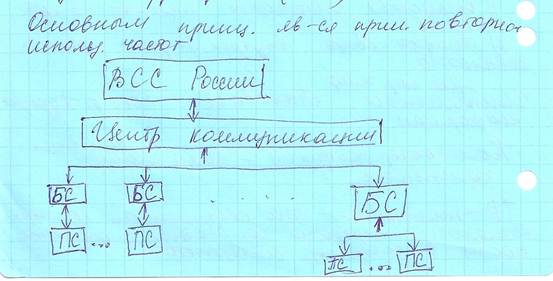 Основным принц. яв-ся прин. повторно
использ. частот
ВСС России
Центр коммуникации
БС БС . . . . БС
ПС ... ПС
ПС ... ПС